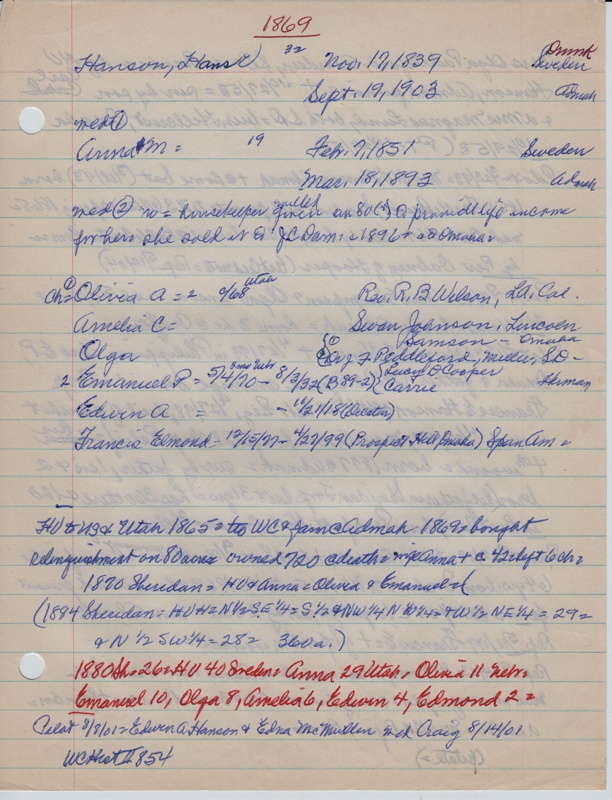 1869
Drunk
Hanson, Hans 32 Nov. 17, 1839 Sweden
Sept. 19, 1903 Admah
med ①
Anna M = 19 Feb. 7, 1851 Sweden
Mar. 18, 1893 Admah
med ② no = housekeeper willed given an 80 provid life income
for her = she sold it J C Dam = 1896 = Omaha =
ch = ① Olivia A = 2 9/68 Utah Rev. R. B Wilson, LA. Cal.
Amelia C = Swan Johnson, Lincoln
Olga Ramson - Omaha
Peddleford, Miller, SD -
2 Emanuel P = 5/4/70 - 8/3/32 (B 89-2) Lucy O Cooper Herman
Carrie
Edwin A = - 11/21/18
Francis Elmond - 12/15/77 - 4/22/99 (Prospect Hill, Omaha) Span Am =
HU to US & Utah 1865 = to WC & fam Admah 1869 = bought
relinquishment on 80 acres owned 720 death = Anna + c. 42 = left 6 ch =
1870 Sheridan = HU & Anna = Olivia & Emanuel
(1884 Sheridan = HUH = N 1/2 S.E 1/4 = S. 1/2 & NW 1/4 N W 1/4 = & W 1/2 NE 1/4 = 29 =
& N 1/2 SW 1/4 = 28 = 360 a.)
1880 Sh = 26 = HU 40 Sweden = Anna 29 Utah, Olivia 11 Nebr =
Emanuel 10, Olga 8, Amelia 6, Edwin 4, Edmond 2 =
Pilot 8/8/01 = Edwin A Hanson & Edna McMullen md Craig 8/14/01
WC Hist II 854